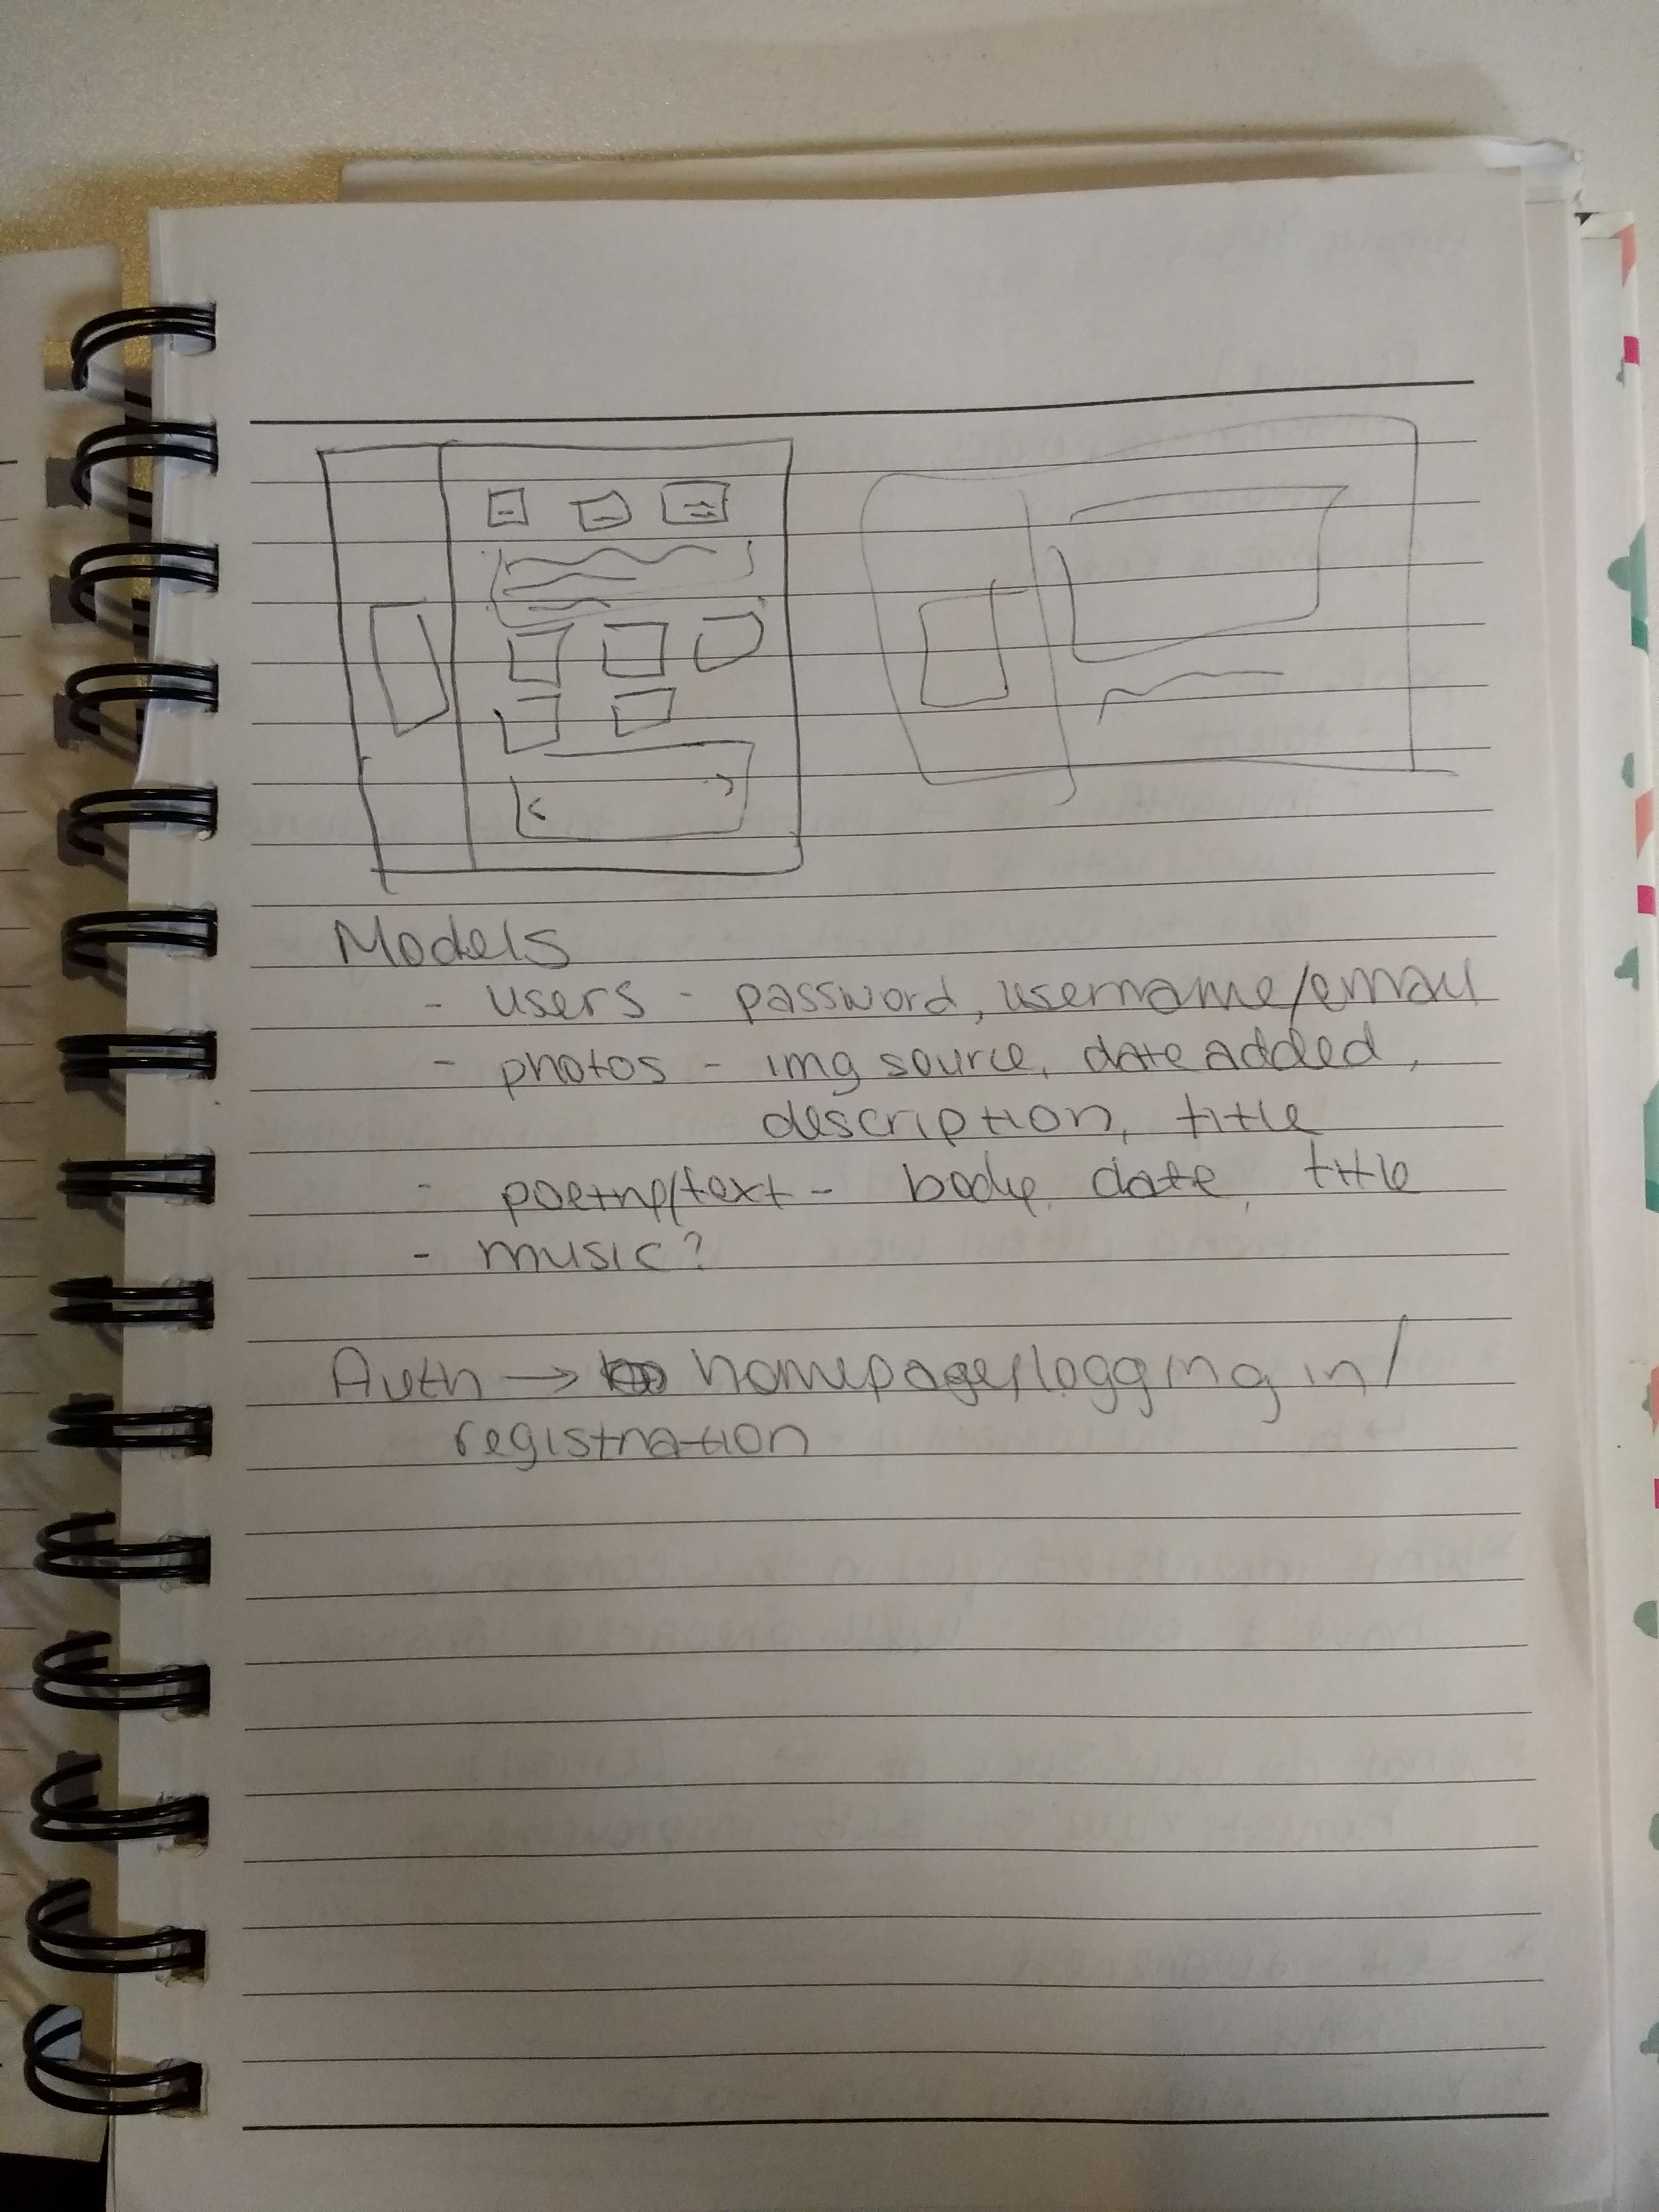 Models
- users - password, username/email
- photos - img source, date added,
description, title
- poetry/text - body, date, title
- music?
Auth → homepage/logging in/
registration